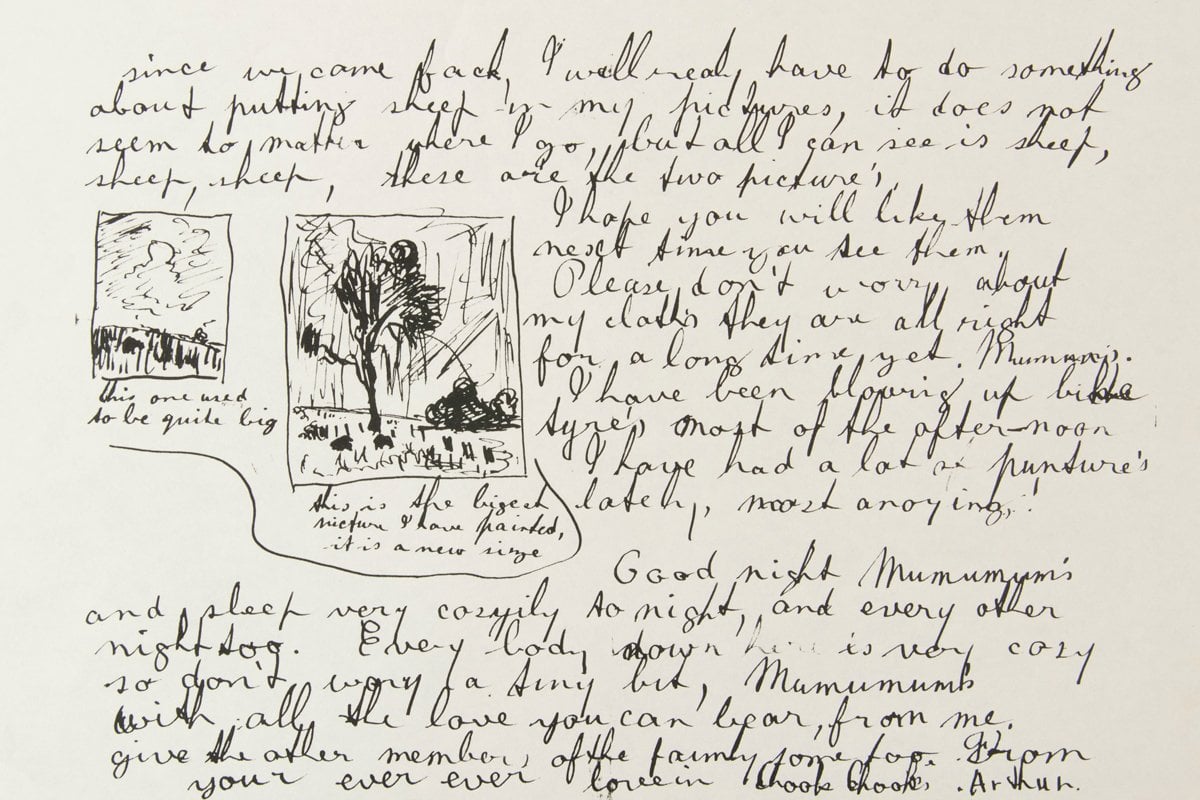 since we came back, I will realy have to do something
about putting sheep in my pictures, it does not
seem to matter where I go, but all I can see is sheep,
sheep, sheep, these are the two picture's,
I hope you will like them
next time you see them.
Please don't worry about
my cloths they are all right
for a long time yet. Mumums.
I have been blowing up bike
tyre's most of the after-noon
I have had a lot of punture's
lately, most anoying,!
this one used
to be quite big
this is the bigest
picture I have painted,
it is a new size
Good night Mumumum's
and sleep very cozyily to night, and every other
night too. Every body down here is very cozy
so don't wory a tiny bit, Mumumum's
with all the love you can bear, from me.
give the other members of the family some too. From
your ever ever lovein Chook Chook. Arthur.